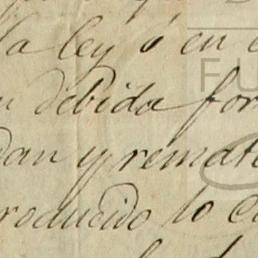 la ley ó en
debida for
dan y remat
roducido lo